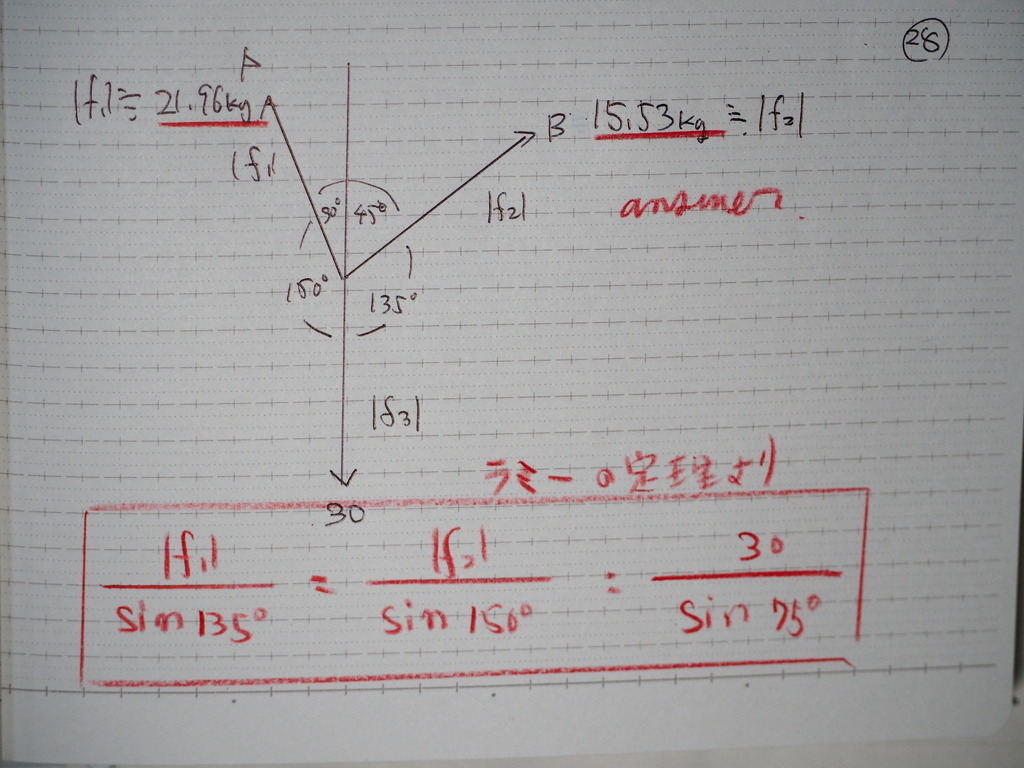 28
A
|f₁|≒21.96kg
B 15.53kg≒|f₂|
|f₁|
30° 45°
|f₂|
answer.
150° 135°
|f₃|
ラミーの定理より
30
|f₁| / sin 135° = |f₂| / sin 150° = 30 / sin 75°